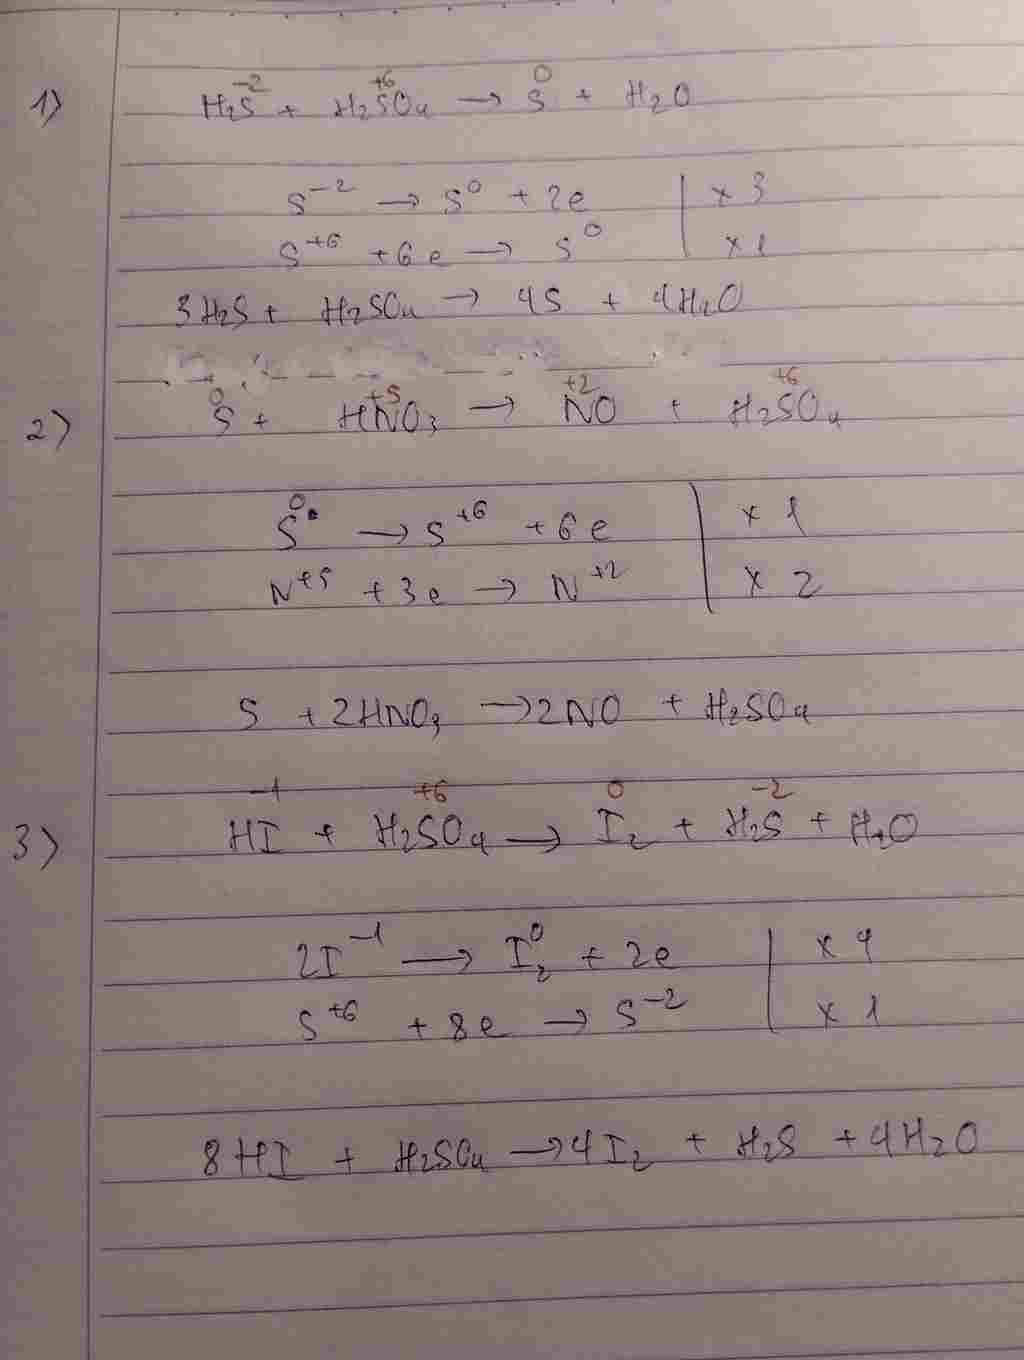 1) H₂S⁻² + H₂S⁺⁶O₄ → S⁰ + H₂O
S⁻² → S⁰ + 2e | x 3
S⁺⁶ + 6e → S⁰ | x 1
3H₂S + H₂SO₄ → 4S + 4H₂O
2) S⁰ + HN⁺⁵O₃ → N⁺²O + H₂S⁺⁶O₄
S⁰ → S⁺⁶ + 6e | x 1
N⁺⁵ + 3e → N⁺² | x 2
S + 2HNO₃ → 2NO + H₂SO₄
3) HI⁻¹ + H₂S⁺⁶O₄ → I₂⁰ + H₂S⁻² + H₂O
2I⁻¹ → I₂⁰ + 2e | x 4
S⁺⁶ + 8e → S⁻² | x 1
8HI + H₂SO₄ → 4I₂ + H₂S + 4H₂O